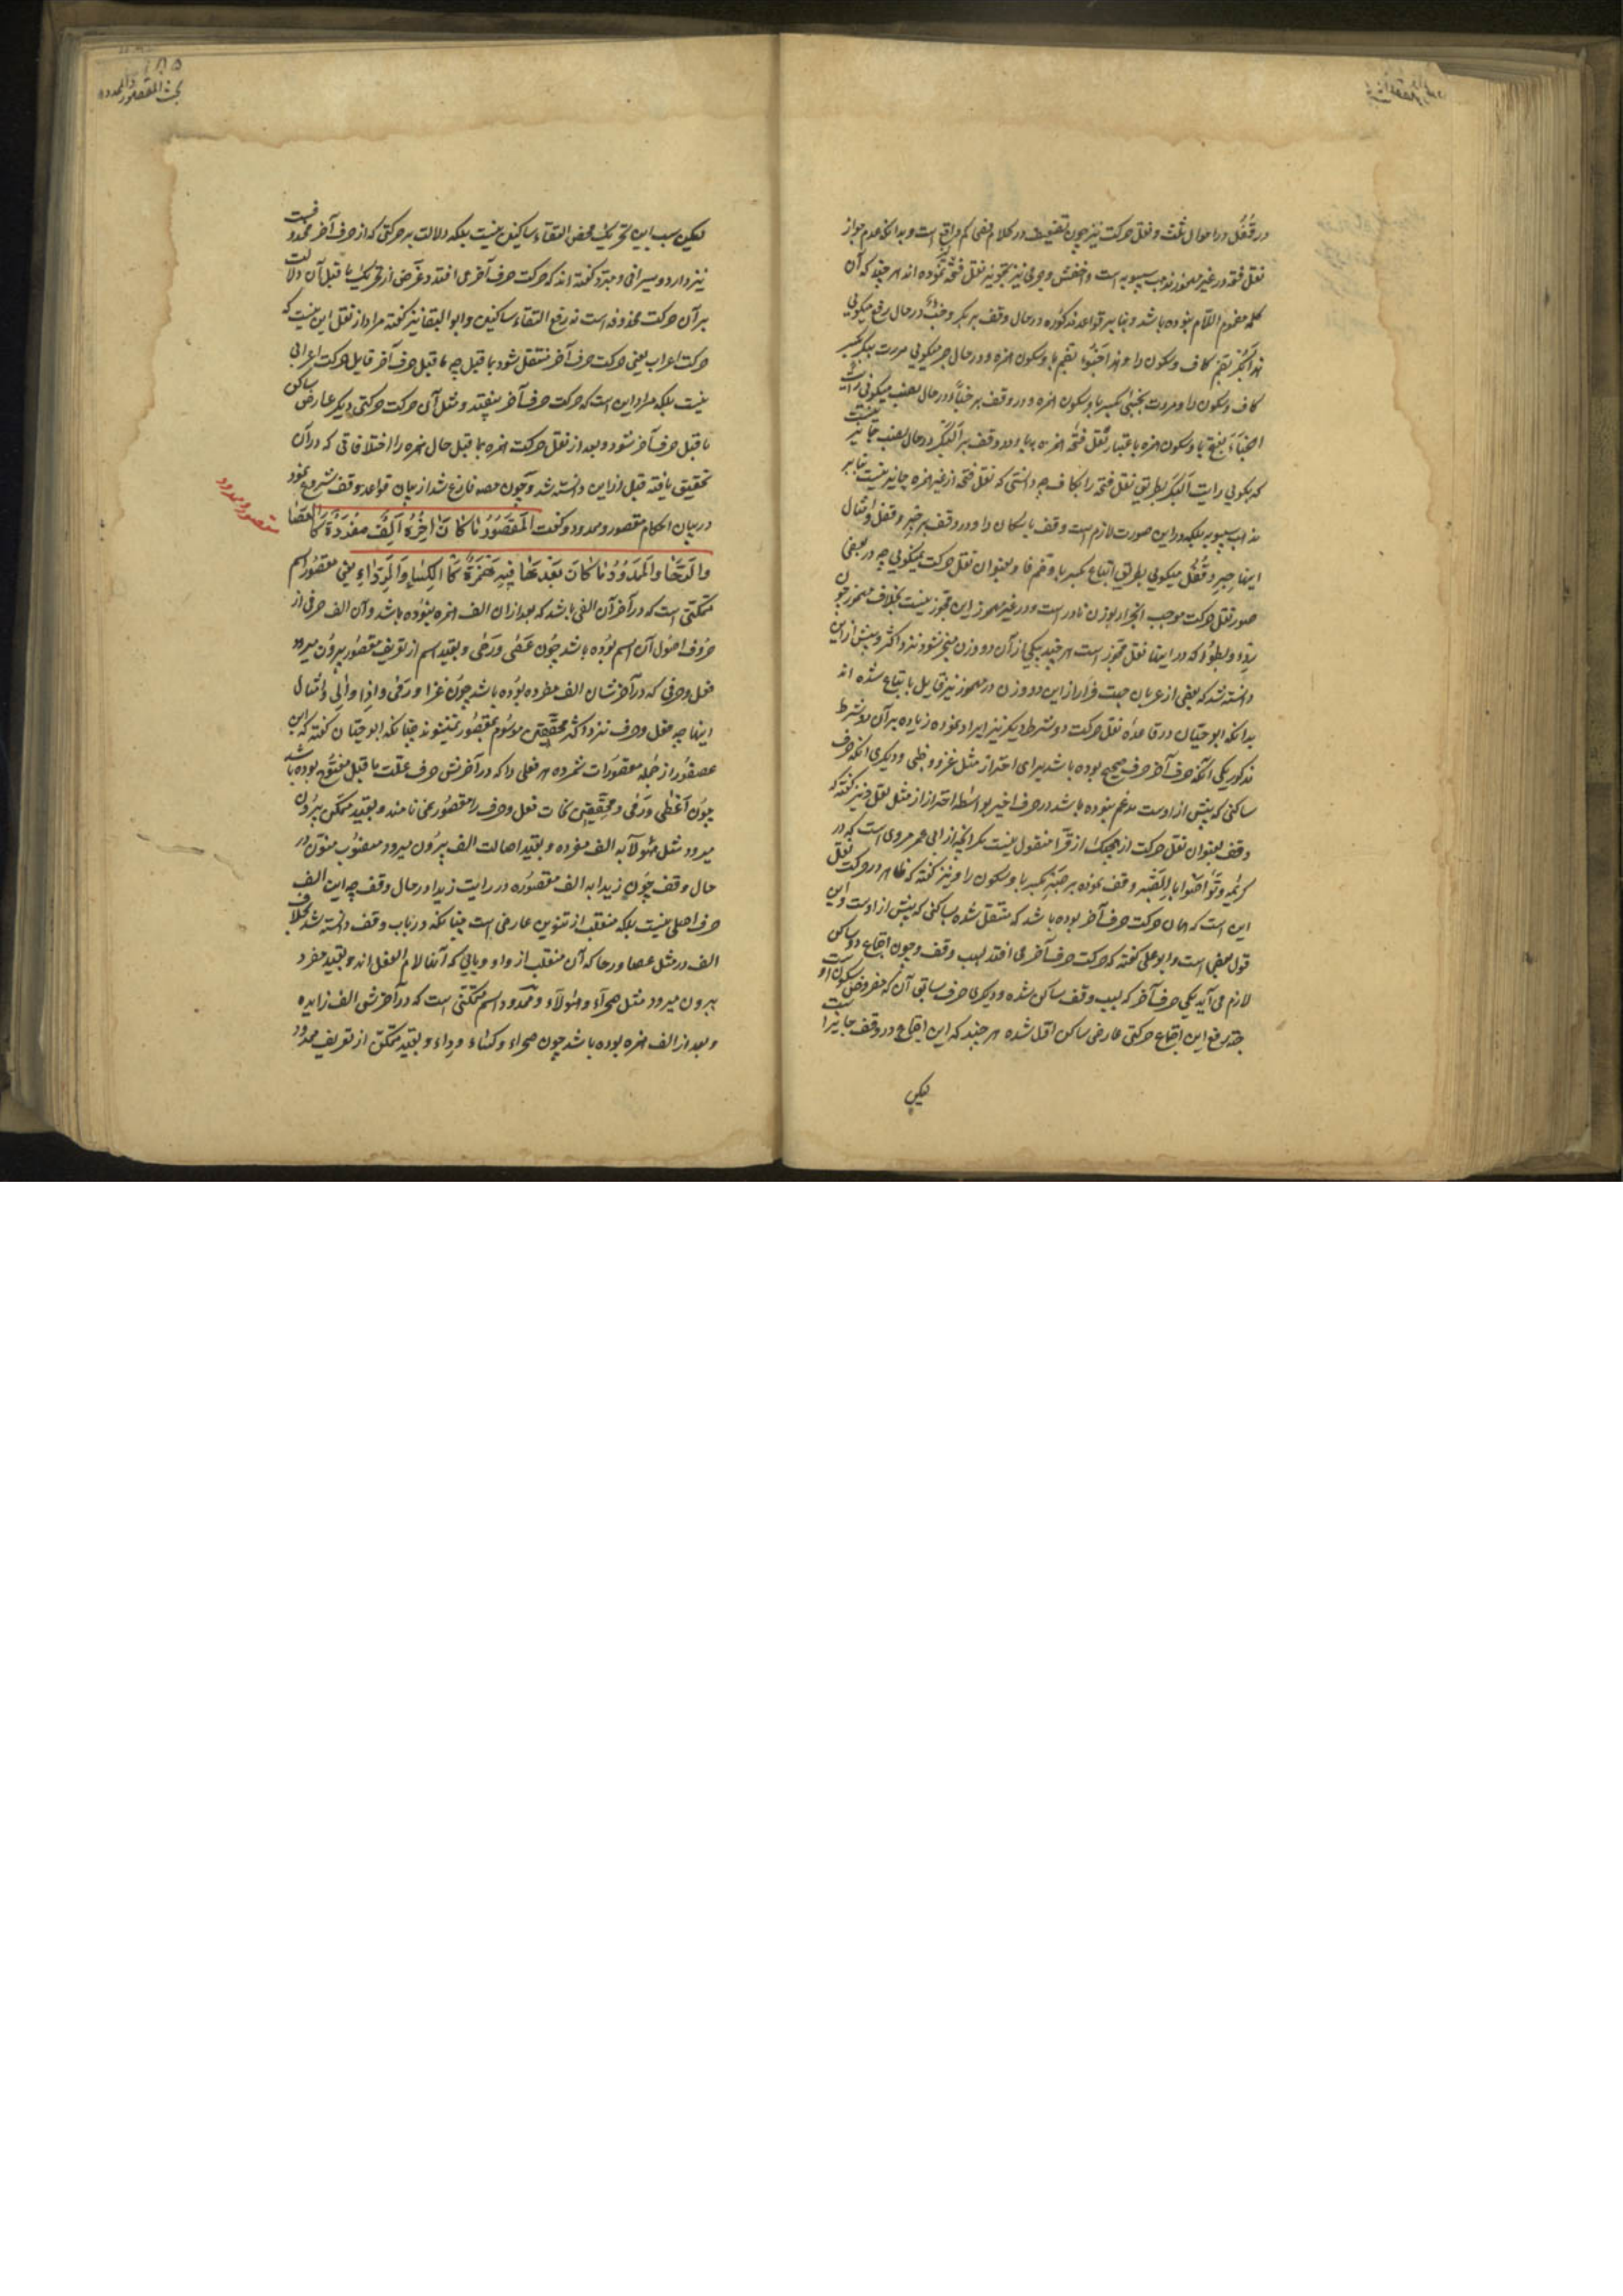 در قفل در احوال ثلث و نقل حرکت نیز چون تضعیف در کلام فصحا کم واقع است و بدانکه عدم جواز
نقل فتحه در غیر مهموز مذهب سیبویه است و اخفش و جرمی نیز تجویز نقل فتحه نموده اند هر چند که آن
کلمه مهموم اللام نبوده باشد و بنا بر قواعد مذکوره در حال وقف بر بکر و خبء در حال رفع میگویی
هذا البکر بضم کاف و سکون را و هذا الخبؤ بضم با و سکون همزه و در حال جر میگویی مررت ببکر بکسر
کاف و سکون را و مررت بخبئ بکسر با و سکون همزه و در وقف بر خبأ در حال نصب میگویی رایت
الخبأ بفتح با و سکون همزه باعتبار نقل فتحه همزه به با و در وقف بر البکر در حال نصب جایز نیست
که بگویی رایت البکر بطریق نقل فتحه را بکاف چه دانستی که نقل فتحه از غیر همزه جایز نیست بنابر
مذهب سیبویه بلکه در این صورت لازم است وقف باسکان را و در وقف بر حبر و قفل و امثال
اینها حبر و قفل میگویی بطریق اتباع بکسر با و ضم فا و بعنوان نقل حرکت نمیگویی چه در بعضی
صور نقل حرکت موجب انجرار بوزن نادر است و در غیر مهموز این مجوز نیست بخلاف مهموز چون
ردء و بطؤ که در اینها نقل مجوز است هر چند بیکی از آن دو وزن منجر شود نزد اکثر و پیش از این
دانسته شد که بعضی از عربان جهت فرار از این دو وزن در مهموز نیز قایل باتباع شده اند
بدانکه ابو حیان در قاعده نقل حرکت دو شرط دیگر نیز ایراد نموده زیاده بر آن دو شرط
مذکور یکی آنکه حرف آخر حرف صحیح بوده باشد برای احتراز مثل غزو و ظبی و دیگری آنکه حرف
ساکنی که پیش از اوست مدغم نبوده باشد در حرف اخیر بواسطه احتراز از مثل نقل و نیز گفته که
وقف بعنوان نقل حرکت از هیچیک از قرا منقول نیست مگر آنچه از ابی عمر مروی است که در
کریمه و تواصوا بالصبر وقف نموده بر صبر بکسر با و سکون را و نیز گفته که ظاهر در حرکت نقل
این است که همان حرکت حرف آخر بوده باشد که منتقل شده بساکنی که پیش از اوست و این
قول بعضی است و ابو علی گفته که حرکت حرف آخر می افتد بسبب وقف و چون اجتماع دو ساکن
لازم می آید یکی حرف آخر که بسبب وقف ساکن شده و دیگری حرف سابق آن که مفروض سکون اوست
جهة رفع این اجتماع حرکتی عارضی ساکن اول شده هر چند که این اجتماع در وقف جایز است
لیکن
بحث المقصور والممدود
لیکن سبب این تحریک محض التقاء ساکنین نیست بلکه دلالت بر حرکتی که از حرف آخر محذوفست
نیز دارد و سیرافی و مبرد گفته اند که حرکت حرف آخر می افتد و غرض از تحریک ماقبل آن دلالت
بر آن حرکت محذوفه است نه رفع التقاء ساکنین و ابو البقا نیز گفته مراد از نقل این نیست که
حرکت اعراب یعنی حرکت حرف آخر منتقل شود بماقبل چه ماقبل حرف آخر قابل حرکت اعرابی
نیست بلکه مراد این است که حرکت حرف آخر بیفتد و مثل آن حرکت حرکتی دیگر عارض ساکن
ماقبل حرف آخر شود و بعد از نقل حرکت همزه بماقبل حال همزه را اختلافاتی که در آن
تحقیق یافته قبل از این دانسته شد و چون مصه فارغ شد از بیان قواعد وقف شروع نمود
در بیان احکام مقصور و ممدود و گفت المقصور ما کان آخره الف مفردة کالعصا
مقصور و ممدود
والرحا والممدود ما کان بعدها فیه همزة کالکساء والرداء یعنی مقصور اسم
متمکنی است که در آخر آن الفی باشد که بعد از آن الف همزه نبوده باشد و آن الف حرفی از
حروف اصول آن اسم بوده باشد چون عصی و رحی و بقید اسم از تعریف مقصور بیرون میرود
فعل و حرفی که در آخر شان الف مفرده بوده باشد چون غزا و رمی و اذا و الی و امثال
اینها چه فعل و حرف نزد اکثر محققین موسوم بمقصور نمیشوند چنانکه ابو حیان گفته که ابن
عصفور از جمله مقصورات شمرده هر فعلی را که در آخرش حرف علت ماقبل مفتوح بوده باشد
چون اعطی و رمی و محققین نحات فعل و حرف را مقصور نمی نامند و بقید متمکن بیرون
میرود مثل هؤلا به الف مفرده و بقید اصالت الف بیرون میرود منصوب منون در
حال وقف چون زیدا به الف مقصوره در رایت زیدا در حال وقف چه این الف
حرف اصلی نیست بلکه منقلب از تنوین عارضی است چنانکه در باب وقف دانسته شد بخلاف
الف در مثل عصا و رحا که آن منقلب از واو و یایی که آنها لام الفعل اند و بقید مفرد
بیرون میرود مثل صحرآء و هؤلآء و ممدود اسم متمکنی است که در آخرش الف زایده
و بعد از الف همزه بوده باشد چون صحراء و کساء و رداء و بقید متمکن از تعریف ممدود